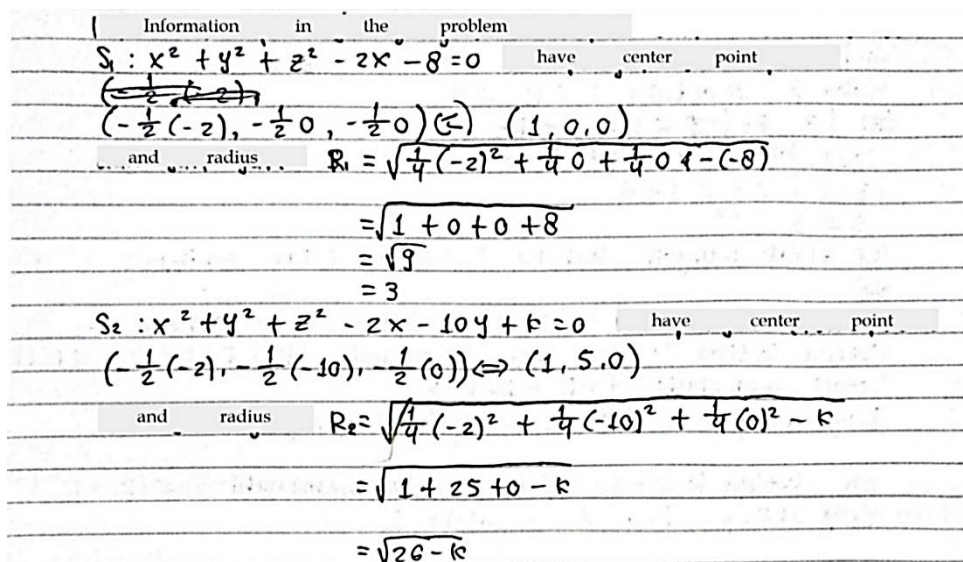 1 Information in the problem
S₁ : x² + y² + z² - 2x - 8 = 0 have center point
(-1/2 (-2), -1/2 0, -1/2 0) (⇔) (1, 0, 0)
and radius R₁ = √(1/4 (-2)² + 1/4 0 + 1/4 0 - (-8))
= √(1 + 0 + 0 + 8)
= √9
= 3
S₂ : x² + y² + z² - 2x - 10y + k = 0 have center point
(-1/2 (-2), -1/2 (-10), -1/2 (0)) ⇔ (1, 5, 0)
and radius R₂ = √(1/4 (-2)² + 1/4 (-10)² + 1/4 (0)² - k)
= √(1 + 25 + 0 - k)
= √(26 - k)